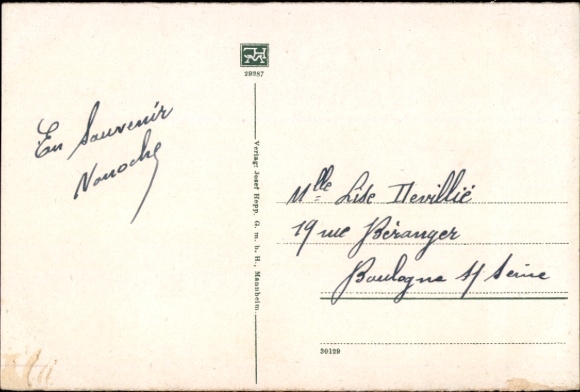 29287
En Souvenir
Nonoche
Verlag: Josef Hepp, G. m. b. H., Mannheim.
Mlle Lise Devillié
19 rue Béranger
Boulogne s/ Seine
30129